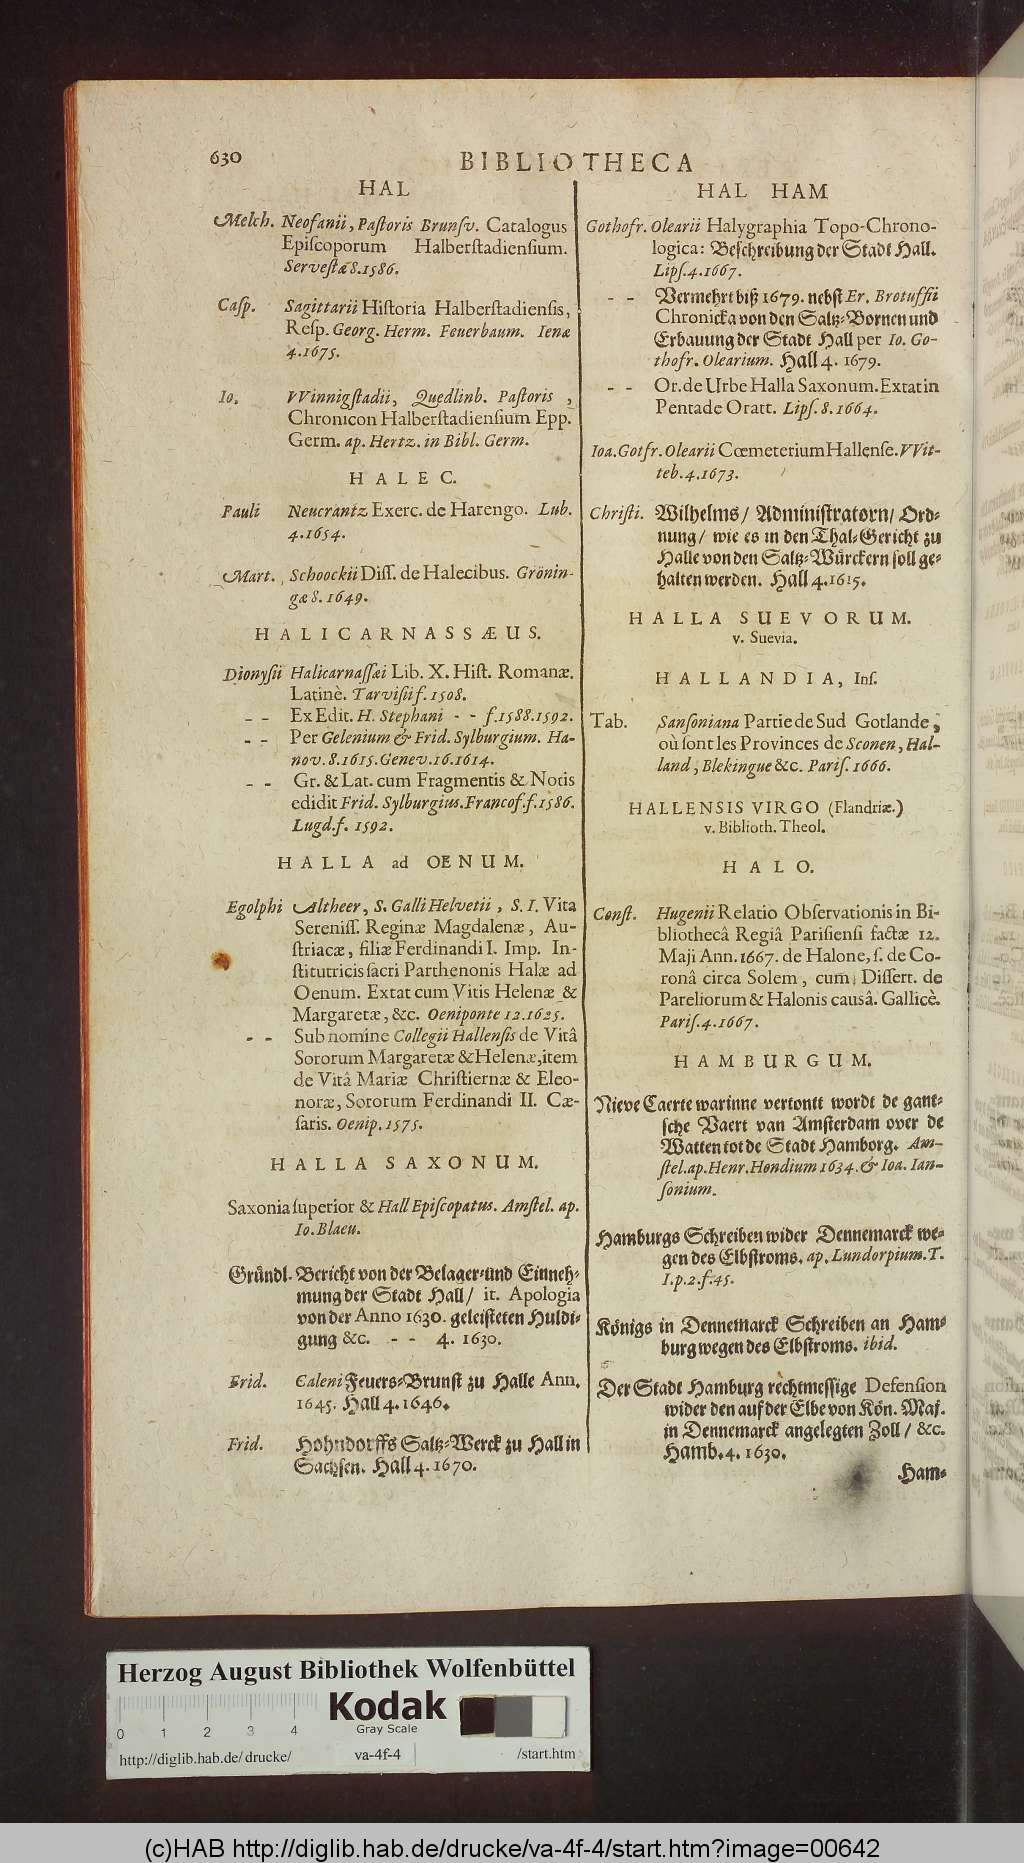 630
BIBLIOTHECA
HAL
Melch. Neofanii, Pastoris Brunsv. Catalogus
Episcoporum Halberstadiensium.
Servestæ 8. 1586.
Casp. Sagittarii Historia Halberstadiensis,
Resp. Georg. Herm. Feuerbaum. Ienæ
4. 1675.
Io. VVinnigstadii, Quedlinb. Pastoris,
Chronicon Halberstadiensium Epp.
Germ. ap. Hertz. in Bibl. Germ.
HALEC.
Pauli Neucrantz Exerc. de Harengo. Lub.
4. 1654.
Mart. Schoockii Diss. de Halecibus. Grönin-
gæ 8. 1649.
HALICARNASSÆUS.
Dionysii Halicarnassæi Lib. X. Hist. Romanæ.
Latinè. Tarvisii f. 1508.
- - Ex Edit. H. Stephani - - f. 1588. 1592.
- - Per Gelenium & Frid. Sylburgium. Ha-
nov. 8. 1615. Genev. 16. 1614.
- - Gr. & Lat. cum Fragmentis & Notis
edidit Frid. Sylburgius. Francof. f. 1586.
Lugd. f. 1592.
HALLA ad OENUM.
Egolphi Altheer, S. Galli Helvetii, S. I. Vita
Sereniss. Reginæ Magdalenæ, Au-
striacæ, filiæ Ferdinandi I. Imp. In-
stitutricis sacri Parthenonis Halæ ad
Oenum. Extat cum Vitis Helenæ &
Margaretæ, &c. Oeniponte 12. 1625.
- - Sub nomine Collegii Hallensis de Vitâ
Sororum Margaretæ & Helenæ, item
de Vitâ Mariæ Christiernæ & Eleo-
noræ, Sororum Ferdinandi II. Cæ-
saris. Oenip. 1575.
HALLA SAXONUM.
Saxonia superior & Hall Episcopatus. Amstel. ap.
Io. Blaeu.
Gründl. Bericht von der Belager- und Einneh-
mung der Stadt Hall/ it. Apologia
von der Anno 1630. geleisteten Huldi-
gung &c. - - 4. 1630.
Frid. Caleni Feuers-Brunst zu Halle Ann.
1645. Hall 4. 1646.
Frid. Hohndorffs Saltz-Werck zu Hall in
Sachsen. Hall 4. 1670.
HAL HAM
Gothofr. Olearii Halygraphia Topo-Chrono-
logica: Beschreibung der Stadt Hall.
Lips. 4. 1667.
- - Vermehrt biß 1679. nebst Er. Brotuffii
Chronicka von den Saltz-Bornen und
Erbauung der Stadt Hall per Io. Go-
thofr. Olearium. Hall 4. 1679.
- - Or. de Urbe Halla Saxonum. Extat in
Pentade Oratt. Lips. 8. 1664.
Ioa. Gotfr. Olearii Cœmeterium Hallense. VVit-
teb. 4. 1673.
Christi. Wilhelms/ Administratorn/ Ord-
nung/ wie es in den Thal-Gericht zu
Halle von den Saltz-Würckern soll ge-
halten werden. Hall 4. 1615.
HALLA SUEVORUM.
v. Suevia.
HALLANDIA, Ins.
Tab. Sansoniana Partie de Sud Gotlande,
où sont les Provinces de Sconen, Hal-
land, Blekingue &c. Paris. 1666.
HALLENSIS VIRGO (Flandriæ.)
v. Biblioth. Theol.
HALO.
Const. Hugenii Relatio Observationis in Bi-
bliothecâ Regiâ Parisiensi factæ 12.
Maji Ann. 1667. de Halone, s. de Co-
ronâ circa Solem, cum Dissert. de
Pareliorum & Halonis causâ. Gallicè.
Paris. 4. 1667.
HAMBURGUM.
Nieve Caerte warinne vertontt wordt de gant-
sche Vaert van Amsterdam over de
Watten tot de Stadt Hamborg. Am-
stel. ap. Henr. Hondium 1634. & Ioa. Ian-
sonium.
Hamburgs Schreiben wider Dennemarck we-
gen des Elbstroms. ap. Lundorpium. T.
I. p. 2. f. 45.
Königs in Dennemarck Schreiben an Ham-
burg wegen des Elbstroms. ibid.
Der Stadt Hamburg rechtmessige Defension
wider den auf der Elbe von Kön. Maj.
in Dennemarck angelegten Zoll/ &c.
Hamb. 4. 1630.
Ham-
Herzog August Bibliothek Wolfenbüttel
0 1 2 3 4
Kodak
Gray Scale
http://diglib.hab.de/drucke/ va-4f-4 /start.htm
(c)HAB http://diglib.hab.de/drucke/va-4f-4/start.htm?image=00642